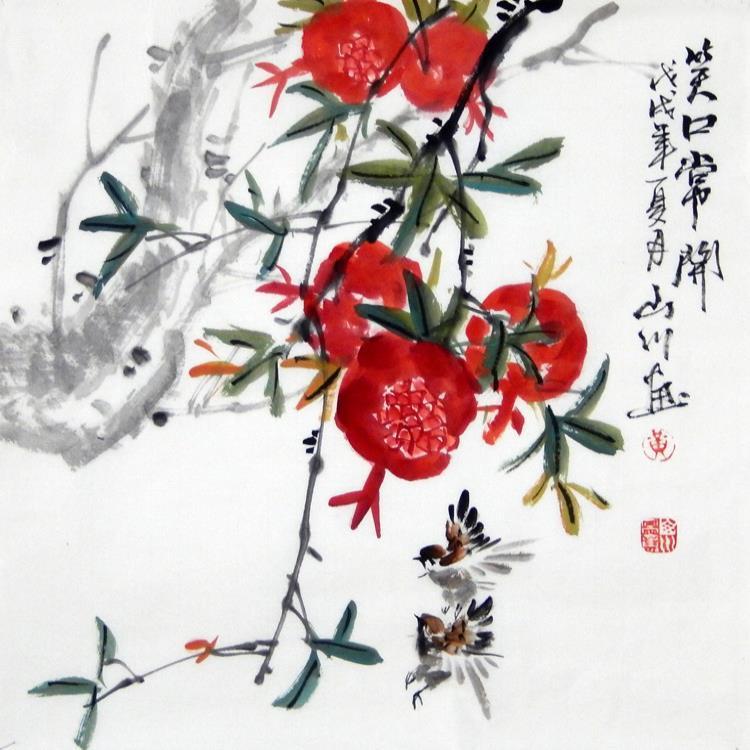 笑口常開
戊戌年夏月山川画
黄